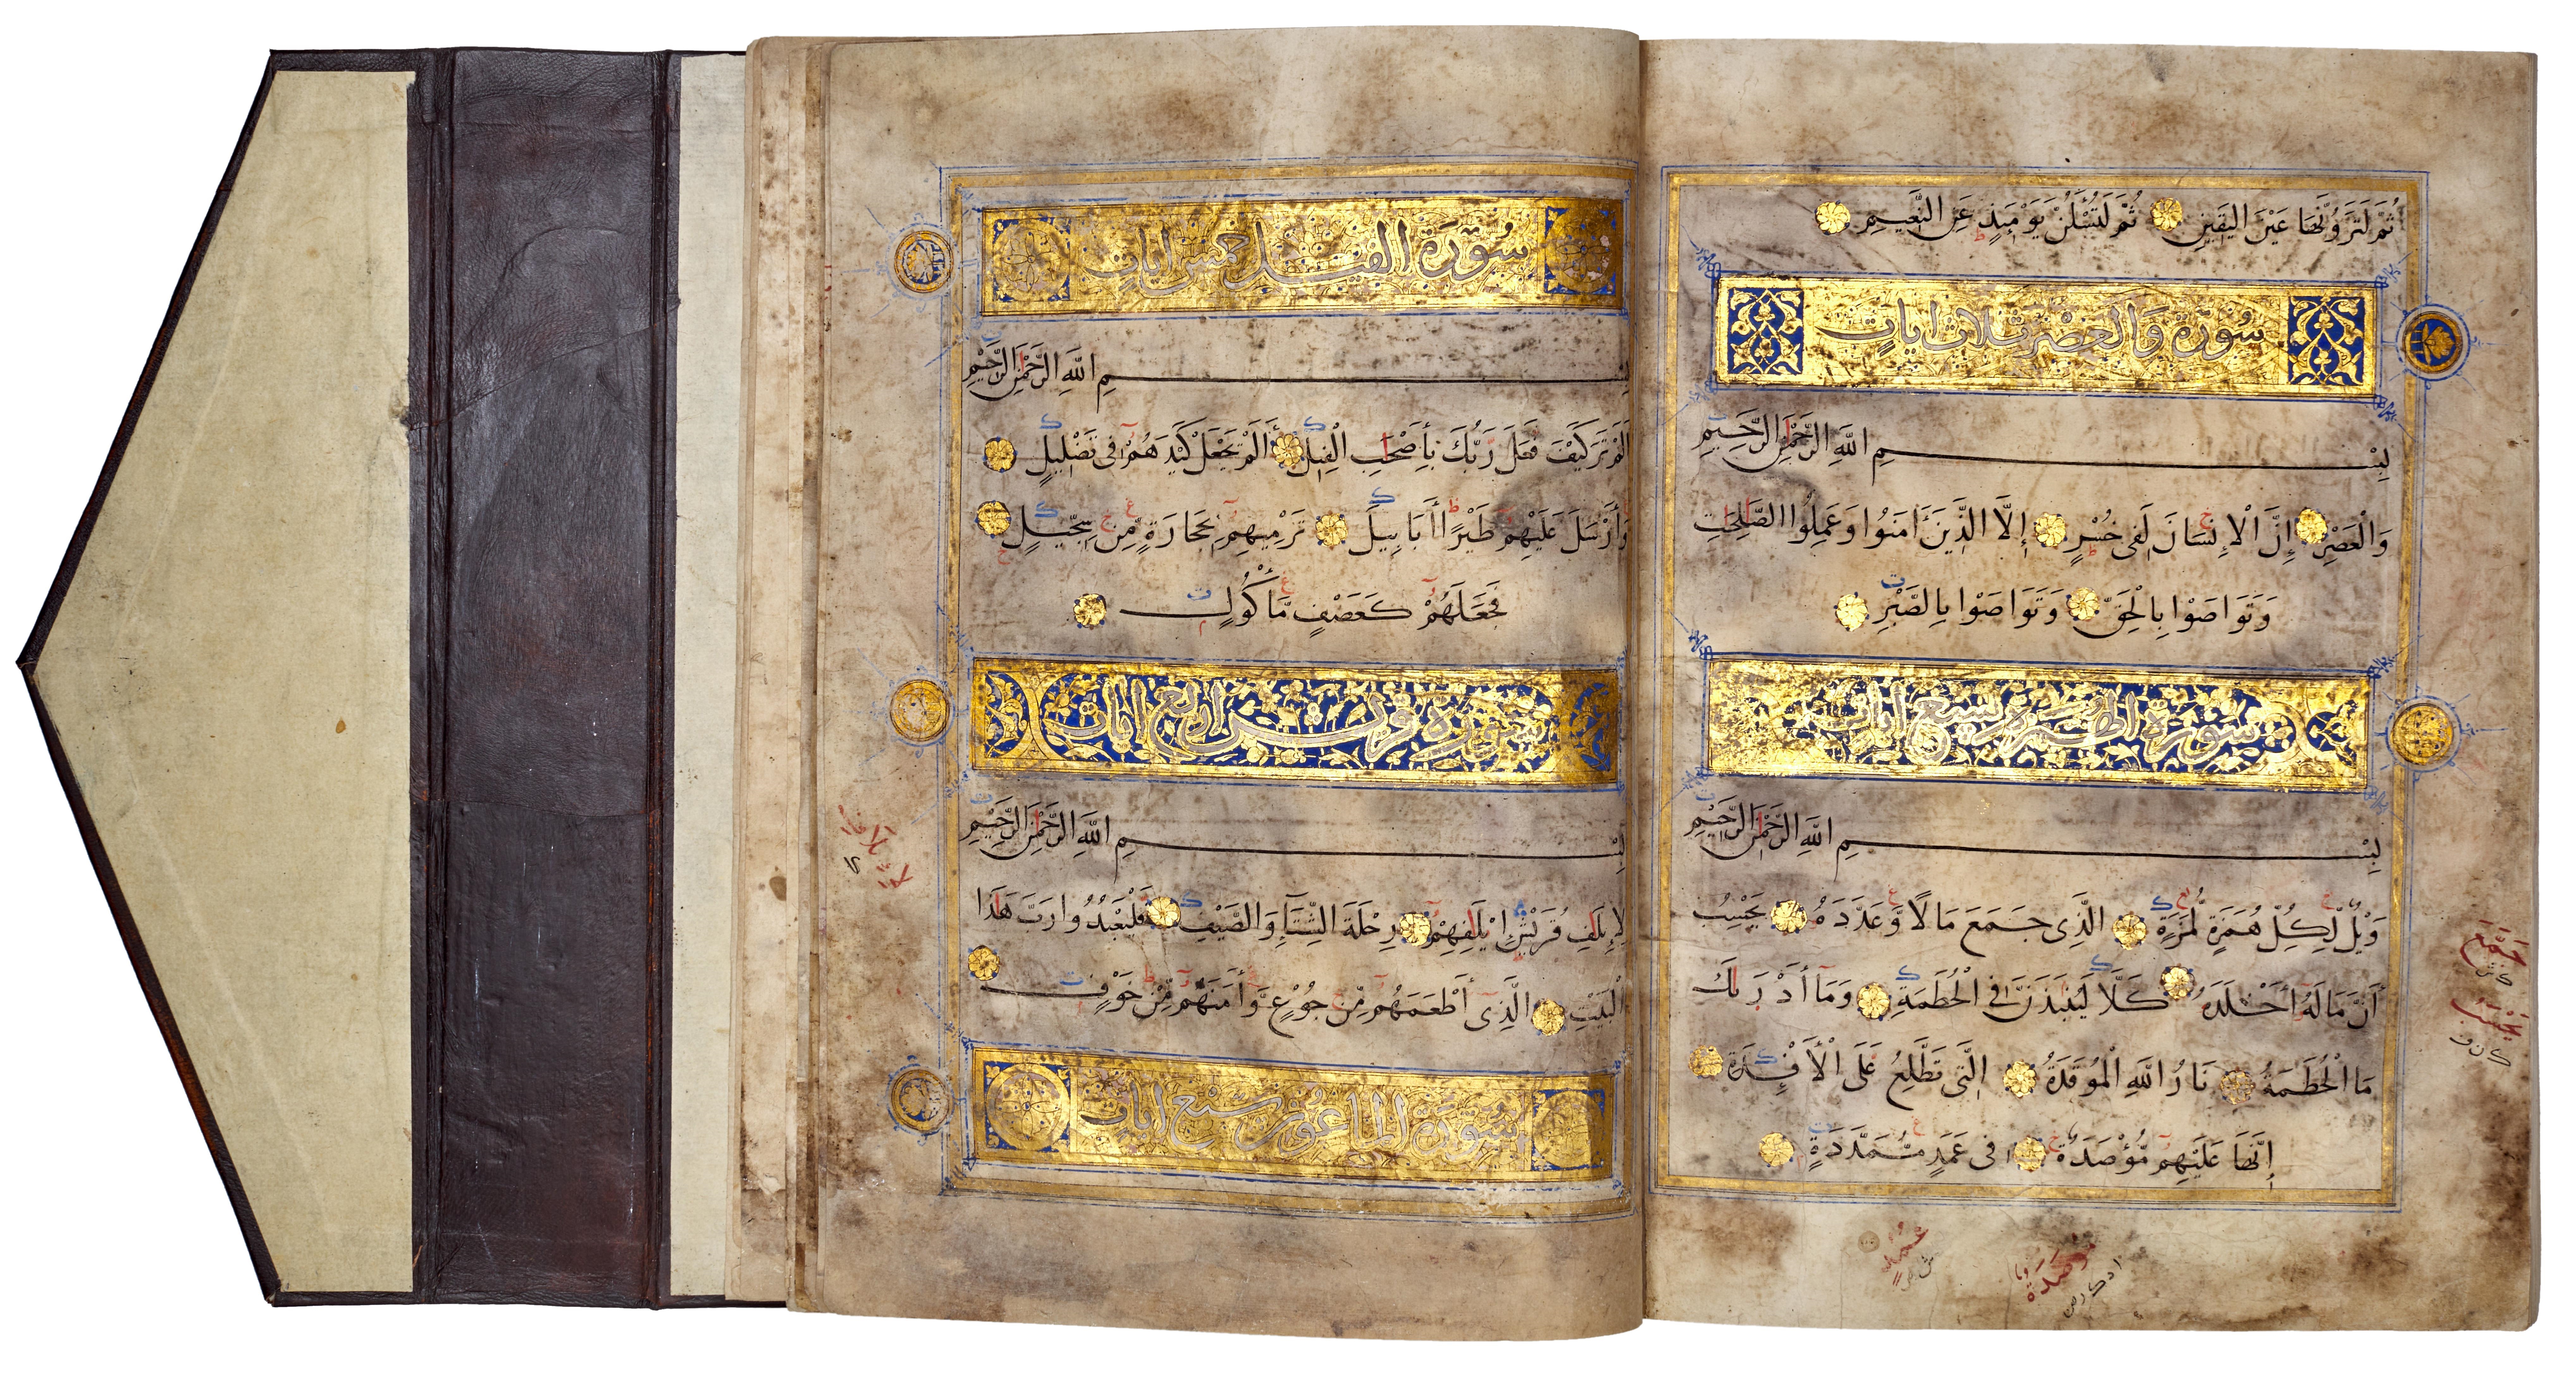 ثُمَّ لَتَرَوُنَّهَا عَيْنَ الْيَقِينِ ثُمَّ لَتُسْـَٔلُنَّ يَوْمَئِذٍ عَنِ النَّعِيمِ
سُورَةُ وَالْعَصْرِ ثَلَاثُ ايَاتٍ
بِسْمِ اللَّهِ الرَّحْمَٰنِ الرَّحِيمِ
وَالْعَصْرِ إِنَّ الْإِنسَانَ لَفِى خُسْرٍ إِلَّا الَّذِينَ ءَامَنُوا وَعَمِلُوا الصَّٰلِحَٰتِ
وَتَوَاصَوْا بِالْحَقِّ وَتَوَاصَوْا بِالصَّبْرِ
سُورَةُ الْهُمَزَةِ تِسْعُ ايَاتٍ
بِسْمِ اللَّهِ الرَّحْمَٰنِ الرَّحِيمِ
وَيْلٌ لِّكُلِّ هُمَزَةٍ لُّمَزَةٍ الَّذِى جَمَعَ مَالًا وَعَدَّدَهُ يَحْسَبُ
أَنَّ مَالَهُ أَخْلَدَهُ كَلَّا لَيُنبَذَنَّ فِى الْحُطَمَةِ وَمَا أَدْرَىٰكَ
مَا الْحُطَمَةُ نَارُ اللَّهِ الْمُوقَدَةُ الَّتِى تَطَّلِعُ عَلَى الْأَفْـِٔدَةِ
إِنَّهَا عَلَيْهِم مُّؤْصَدَةٌ فِى عَمَدٍ مُّمَدَّدَةٍ
جَمَّعَ
يَحْسِبُ
عُمُدٍ
مُوصَدَةٌ
سُورَةُ الْفِيلِ خَمْسُ ايَاتٍ
بِسْمِ اللَّهِ الرَّحْمَٰنِ الرَّحِيمِ
أَلَمْ تَرَ كَيْفَ فَعَلَ رَبُّكَ بِأَصْحَٰبِ الْفِيلِ أَلَمْ يَجْعَلْ كَيْدَهُمْ فِى تَضْلِيلٍ
وَأَرْسَلَ عَلَيْهِمْ طَيْرًا أَبَابِيلَ تَرْمِيهِم بِحِجَارَةٍ مِّن سِجِّيلٍ
فَجَعَلَهُمْ كَعَصْفٍ مَّأْكُولٍ
سُورَةُ قُرَيْشٍ أَرْبَعُ ايَاتٍ
بِسْمِ اللَّهِ الرَّحْمَٰنِ الرَّحِيمِ
لِإِيلَٰفِ قُرَيْشٍ إِيلَٰفِهِمْ رِحْلَةَ الشِّتَاءِ وَالصَّيْفِ فَلْيَعْبُدُوا رَبَّ هَٰذَا
الْبَيْتِ الَّذِى أَطْعَمَهُم مِّن جُوعٍ وَءَامَنَهُم مِّنْ خَوْفٍ
سُورَةُ الْمَاعُونِ سَبْعُ ايَاتٍ